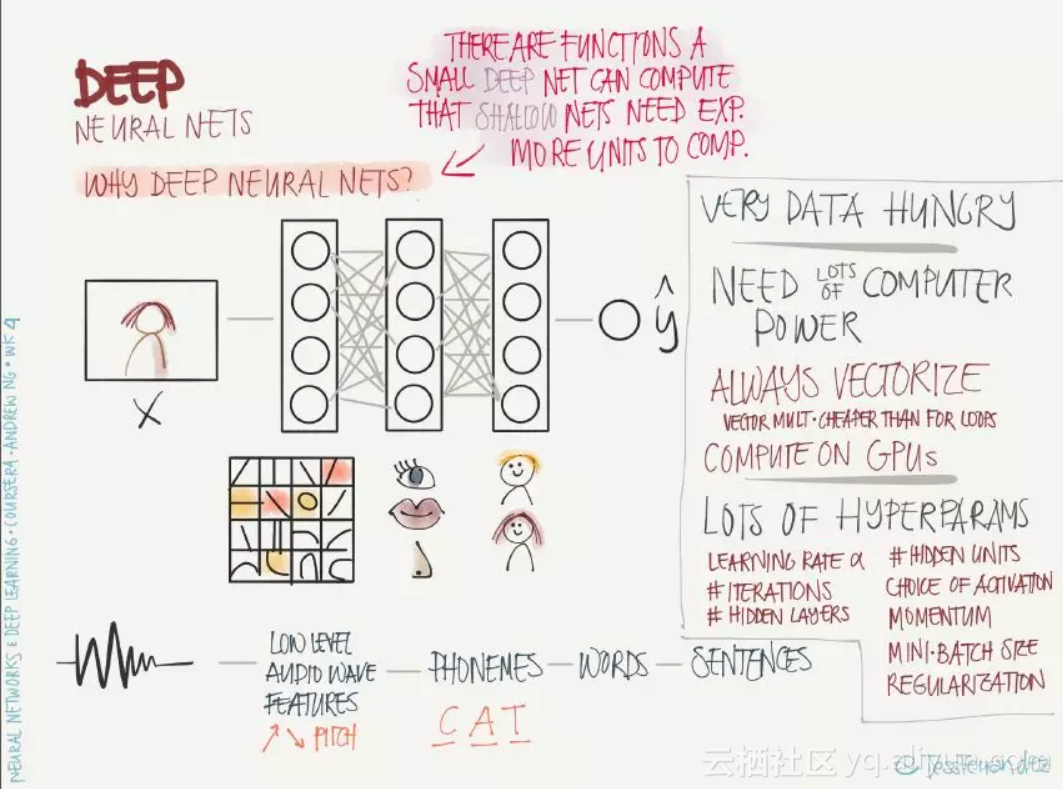 DEEP
NEURAL NETS
WHY DEEP NEURAL NETS?
THERE ARE FUNCTIONS A
SMALL DEEP NET CAN COMPUTE
THAT SHALLOW NETS NEED EXP.
MORE UNITS TO COMP.
X
ŷ
LOW LEVEL
AUDIO WAVE
FEATURES
PITCH
PHONEMES
CAT
WORDS
SENTENCES
VERY DATA HUNGRY
NEED LOTS OF COMPUTER
POWER
ALWAYS VECTORIZE
VECTOR MULT·CHEAPER THAN FOR LOOPS
COMPUTE ON GPUs
LOTS OF HYPERPARAMS
LEARNING RATE α
# ITERATIONS
# HIDDEN LAYERS
# HIDDEN UNITS
CHOICE OF ACTIVATION
MOMENTUM
MINI·BATCH SIZE
REGULARIZATION
NEURAL NETWORKS & DEEP LEARNING · COURSERA · ANDREW NG · WK 4
云栖社区